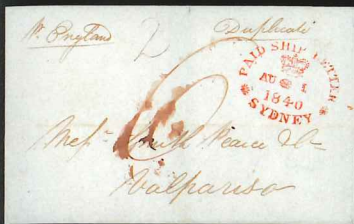 Pr England Duplicate
2
PAID SHIP LETTER
AU 1
1840
SYDNEY
Messrs Smith Pearce & Co
Valpariso